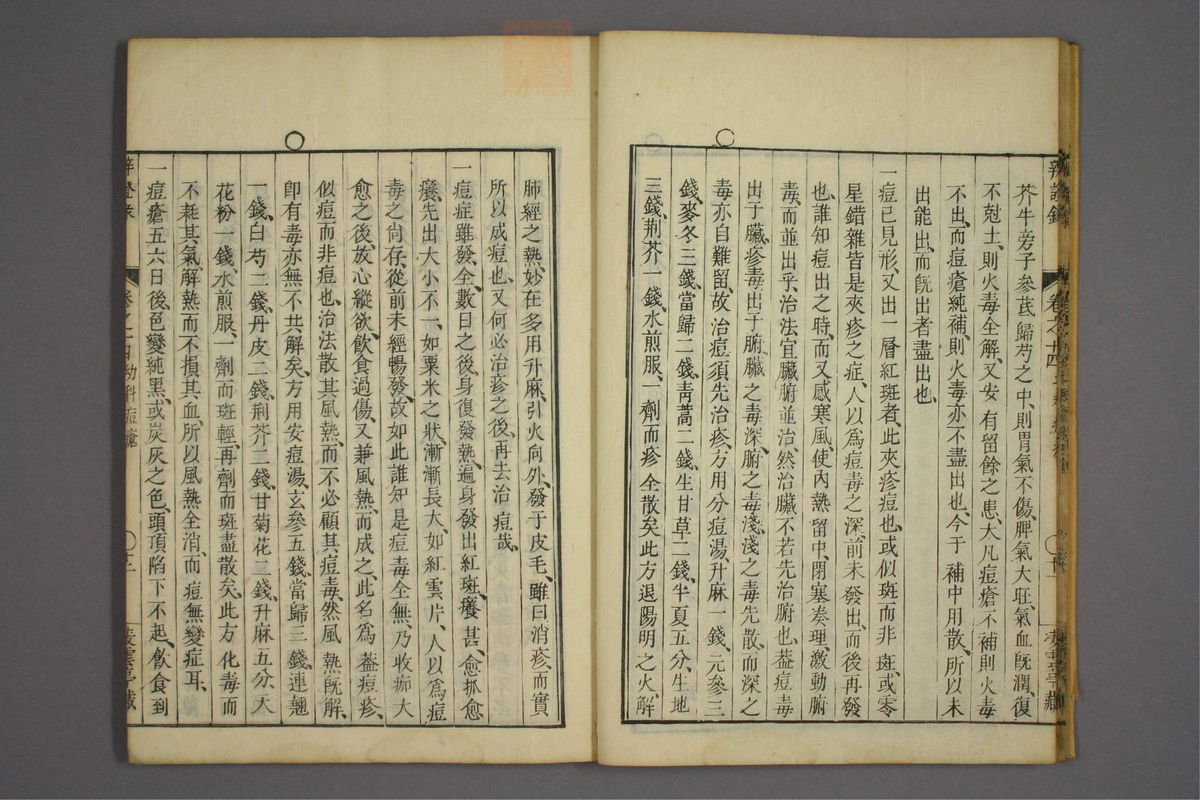 芥牛旁子參芪歸芍之中則胃氣不傷脾氣大旺氣血旣潤復
不尅土則火毒全解又安有留餘之患大凡痘瘡不補則火毒
不出而痘瘡純補則火毒亦不盡出也今于補中用散所以未
出能出而旣出者盡出也
一痘已見形又出一層紅斑者此夾疹痘也或似斑而非斑或零
星錯雜皆是夾疹之症人以爲痘毒之深前未發出而後再發
也誰知痘出之時而又感寒風使內熱留中閉塞奏理激動腑
毒而並出乎治法宜臟腑並治然治臟不若先治腑也葢痘毒
出于臟疹毒出于腑臟之毒深腑之毒淺淺之毒先散而深之
毒亦自難留故治痘須先治疹方用分痘湯升麻一錢元參三
錢麥冬三錢當歸二錢靑蒿二錢生甘草二錢半夏五分生地
三錢荆芥一錢水煎服一劑而疹全散矣此方退陽明之火解
辨證錄
卷之十四
凌雲亭藏
肺經之熱妙在多用升麻引火向外發于皮毛雖曰消疹而實
所以成痘也又何必治疹之後再去治痘哉
一痘症雖發全數日之後身復發熱遍身發出紅斑癢甚愈抓愈
癢先出大小不一如粟米之狀漸漸長大如紅雲片人以爲痘
毒之尙存從前未經暢發故如此誰知是痘毒全無乃收痂大
愈之後放心縱欲飮食過傷又兼風熱而成之此名爲葢痘疹
似痘而非痘也治法散其風熱而不必顧其痘毒然風熱旣解
卽有毒亦無不共解矣方用安痘湯玄參五錢當歸三錢連翹
一錢白芍二錢丹皮二錢荆芥二錢甘菊花二錢升麻五分天
花粉一錢水煎服一劑而斑輕再劑而斑盡散矣此方化毒而
不耗其氣解熱而不損其血所以風熱全消而痘無變症耳
一痘瘡五六日後色變純黑或炭灰之色頭頂陷下不起飮食到
幼科痘瘡
凌雲亭藏